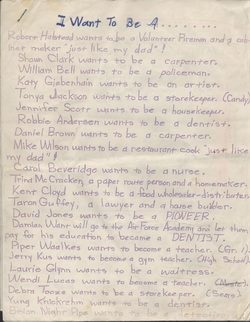 I Want To Be A........
wants to be a Volunteer Fireman and a cab-
inet maker "just like my dad"!
Shawn Clark wants to be a carpenter.
William Bell wants to be a policeman.
Katy Giebenhain wants to be an artist.
Tonya Jackson wants to be a storekeeper. (Candy)
Jennifer Scott wants to be a housekeeper.
Robbie Anderson wants to be a dentist.
Daniel Brown wants to be a carpenter.
Mike Wilson wants to be a restaurant cook "just like
my dad"!
Carol Beveridge wants to be a nurse.
Trina McCracken, a paper route person and a homemaker.
Kent Cloyd wants to be a food wholesaler-distributer.
Taron Guffey, a lawyer and a house builder.
David Jones wants to be a PIONEER.
Damian Want will go to the Air Force Academy and let them
pay his education to become a DENTIST.
Piper Waalkes wants to become a teacher. (Gr. 1).
Jerry Kus wants to become a gym teacher. (High School).
Laurie Glynn wants to be a waitress.
Wendi Lucas wants to become a teacher.
Debra Toops wants to be a storekeeper. (Sears)
Yung wants to be a dentist.
Brian Night Pipe wants to